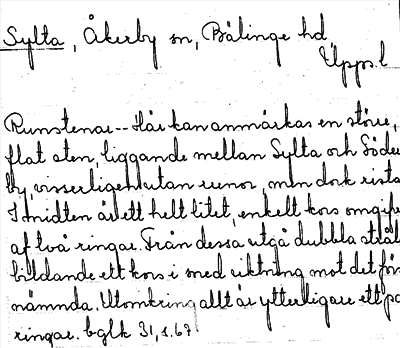 Sylta, Åkerby sn, Bälinge hd
Upps. l
Runstenar -- Här kan anmärkas en större,
flat sten, liggande mellan Sylta och Söder
by, visserligen utan runor, men dock rista
I midten är ett helt litet, enkelt kors omgife
af två ringar. Från dessa utgå dubbla strål
bildande ett kors i sned riktning mot det förs
nämnda. Utomkring allt är ytterligare ett pa
ringar. bglk 31, s. 67